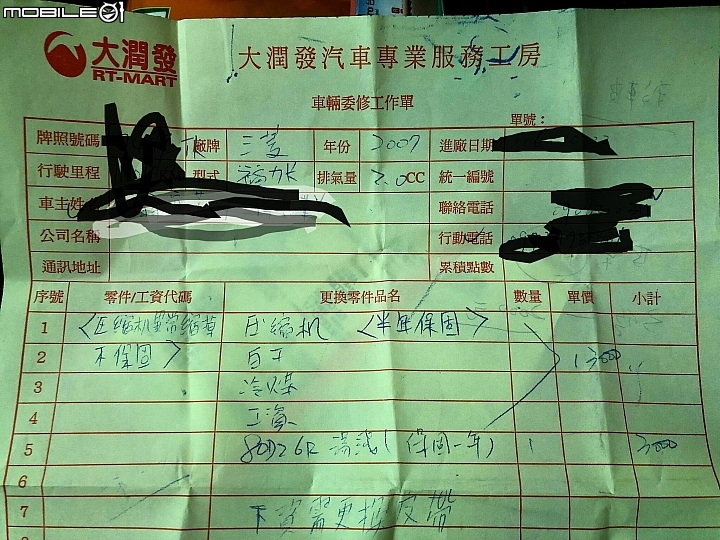 MOBILE01
大潤發
RT-MART
大潤發汽車專業服務工房
車輛委修工作單
單號：
牌照號碼 廠牌 三菱 年份 2007 進廠日期
行駛里程 型式 排氣量 2.0CC 統一編號
車主姓名 聯絡電話
公司名稱 行動電話
通訊地址 累積點數
序號 零件/工資代碼 更換零件品名 數量 單價 小計
1 〈压縮机異常縮草 压縮机 〈半年保固〉
2 不保固〉 13000
3 冷煤
4 工資
5 80D26R 湯淺(保固一年) 1 3000
6
7 下資需更換皮帶